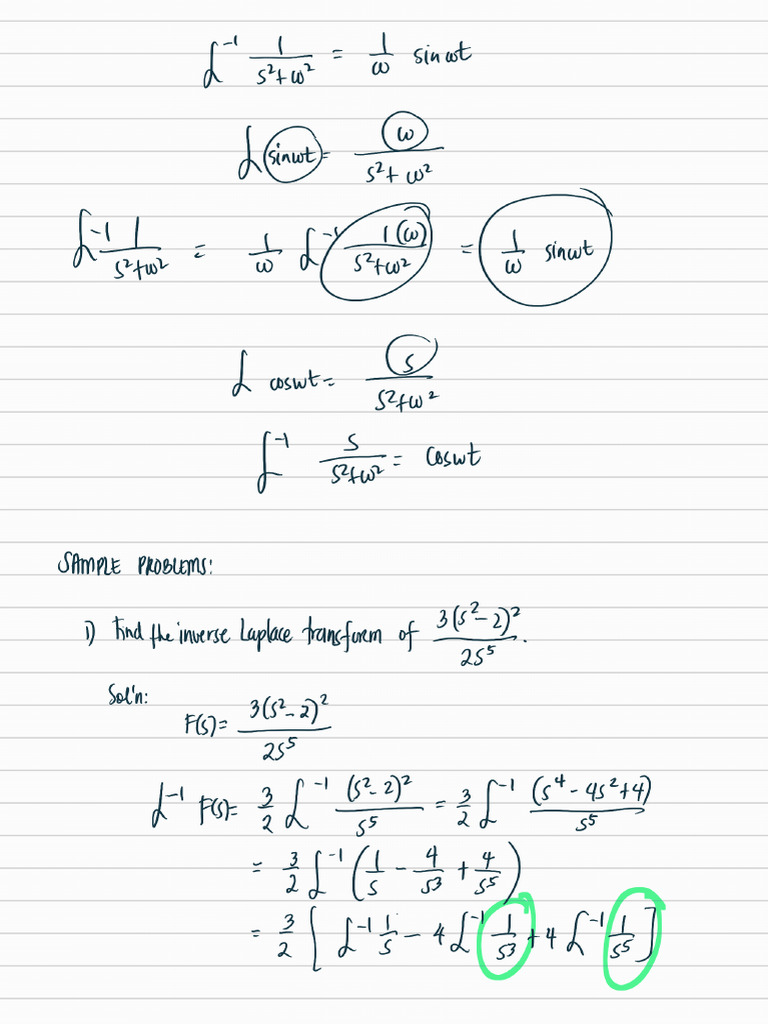 ℒ⁻¹ 1/(s²+ω²) = 1/ω sinωt
ℒ sinωt = ω/(s²+ω²)
ℒ⁻¹ 1/(s²+ω²) = 1/ω ℒ⁻¹ 1(ω)/(s²+ω²) = 1/ω sinωt
ℒ cosωt = s/(s²+ω²)
ℒ⁻¹ s/(s²+ω²) = cosωt
SAMPLE PROBLEMS:
1) Find the inverse Laplace transform of 3(s²-2)²/2s⁵.
Sol'n:
F(s) = 3(s²-2)²/2s⁵
ℒ⁻¹ F(s) = 3/2 ℒ⁻¹ (s²-2)²/s⁵ = 3/2 ℒ⁻¹ (s⁴-4s²+4)/s⁵
= 3/2 ℒ⁻¹ (1/s - 4/s³ + 4/s⁵)
= 3/2 [ ℒ⁻¹ 1/s - 4ℒ⁻¹ 1/s³ + 4ℒ⁻¹ 1/s⁵ ]